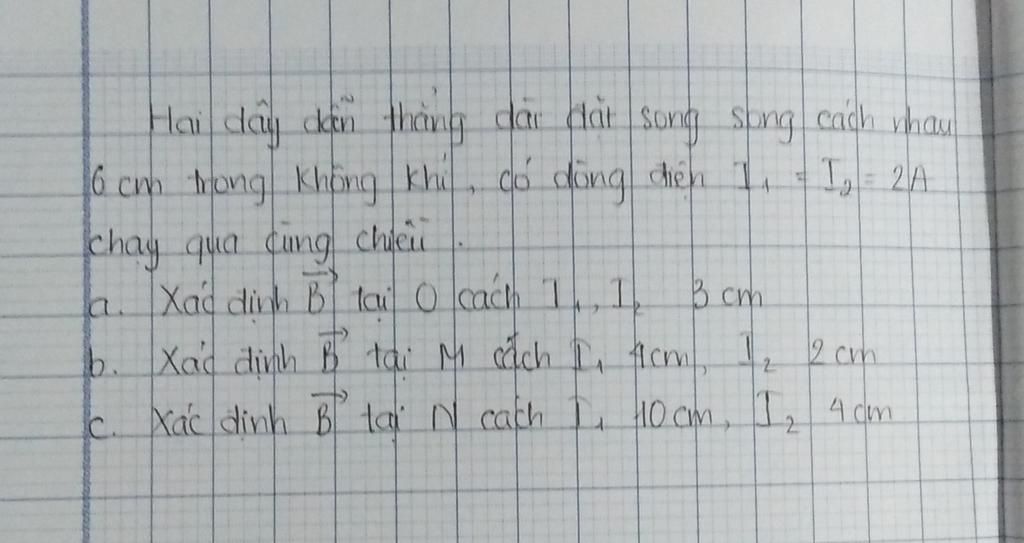 Hai dây dẫn thẳng dài đặt song song cách nhau
6 cm trong không khí, có dòng điện I₁ = I₂ = 2A
chạy qua cùng chiều.
a. Xác định B⃗ tại O cách I₁, I₂ 3 cm
b. Xác định B⃗ tại M cách I₁ 4cm, I₂ 2 cm
c. Xác định B⃗ tại N cách I₁ 10 cm, I₂ 4 cm